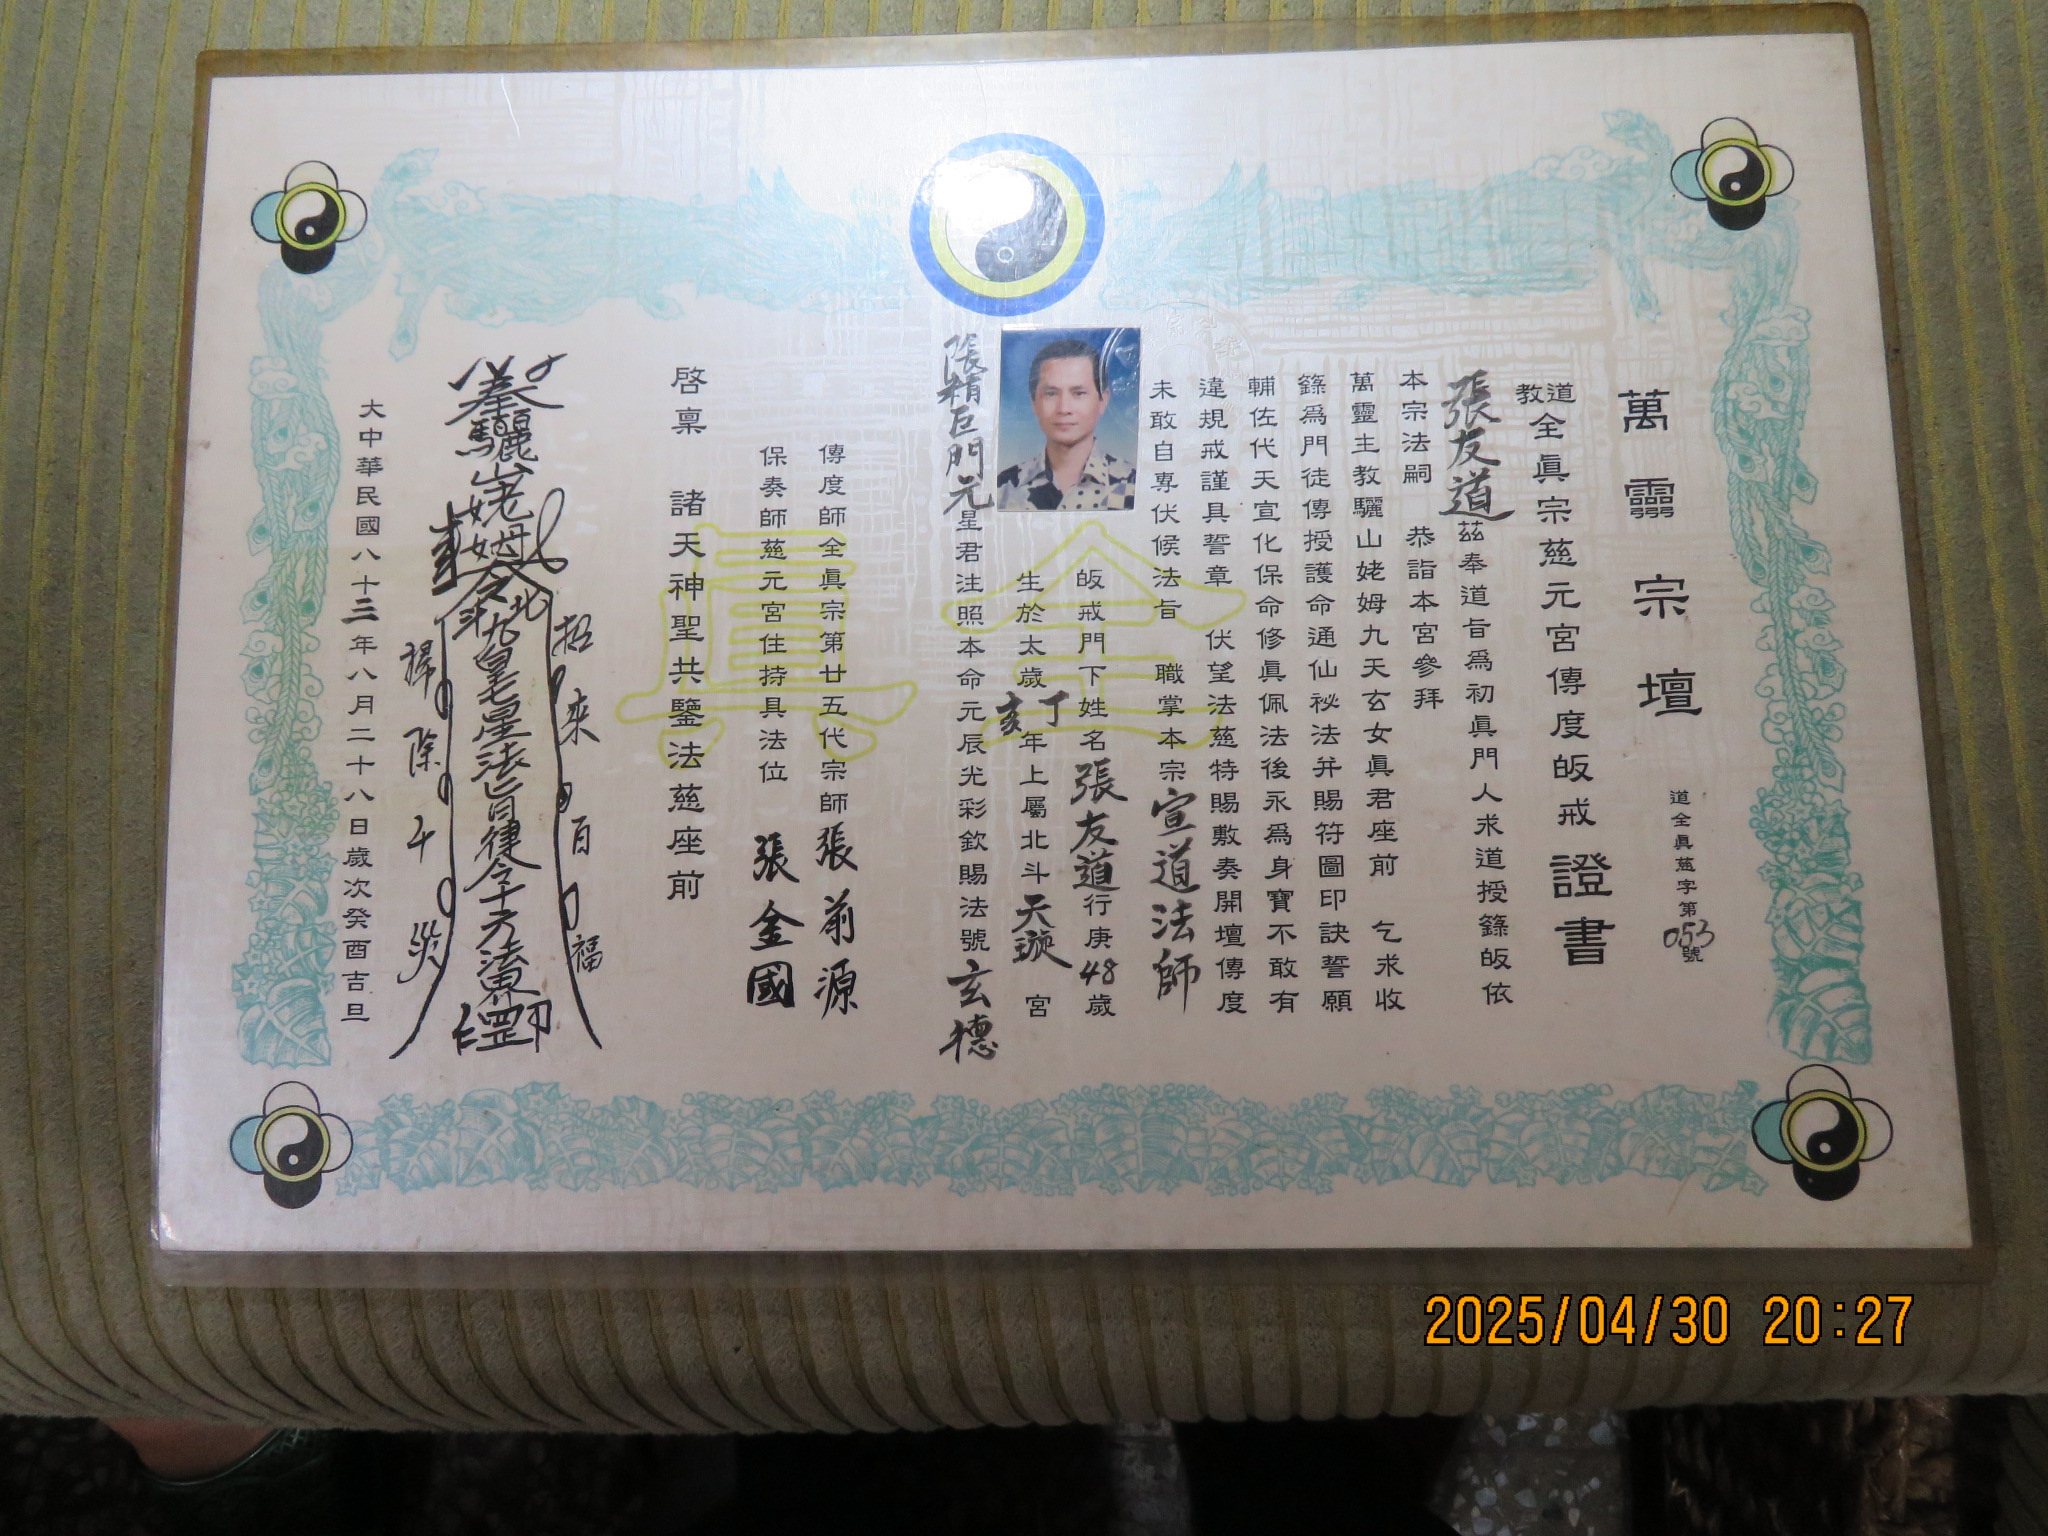 萬靈宗壇
道全眞慈字第053號
道教全眞宗慈元宮傳度皈戒證書
張友道茲奉道旨爲初眞門人求道授籙皈依
本宗法嗣 恭詣本宮參拜
萬靈主教驪山姥姆九天玄女眞君座前 乞求收
籙爲門徒傳授護命通仙祕法幷賜符圖印訣誓願
輔佐代天宣化保命修眞佩法後永爲身寶不敢有
違規戒謹具誓章 伏望法慈特賜敷奏開壇傳度
未敢自專伏候法旨 職掌本宗宣道法師
皈戒門下姓名張友道行庚48歲
生於太歲丁亥年上屬北斗天璇 宮
陰精巨門元星君注照本命元辰光彩欽賜法號玄德
傳度師全眞宗第廿五代宗師張前源
保奏師慈元宮住持具法位 張金國
啓稟 諸天神聖共鑒法慈座前
奉驪山老姆
北斗九皇七星法旨律令
招來百福
掃除千災
大中華民國八十三年八月二十八日歲次癸酉吉旦
全眞
2025/04/30 20:27